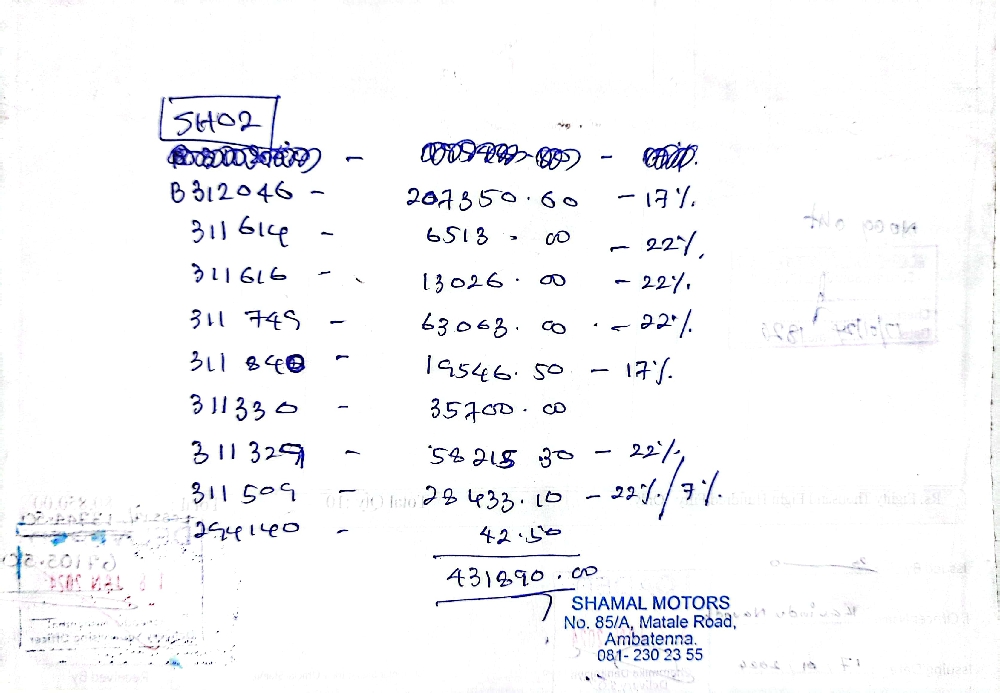 SH02
B312046 - 207350.60 - 17%
311614 - 6513.00 - 22%
311616 - 13026.00 - 22%
311749 - 63063.00 - 22%
311840 - 19546.50 - 17%
311330 - 35700.00
311329 - 58215 30 - 22%
311509 - 28433.10 - 22%/7%
294140 - 42.50
431890.00
SHAMAL MOTORS
No. 85/A, Matale Road,
Ambatenna.
081- 230 23 55